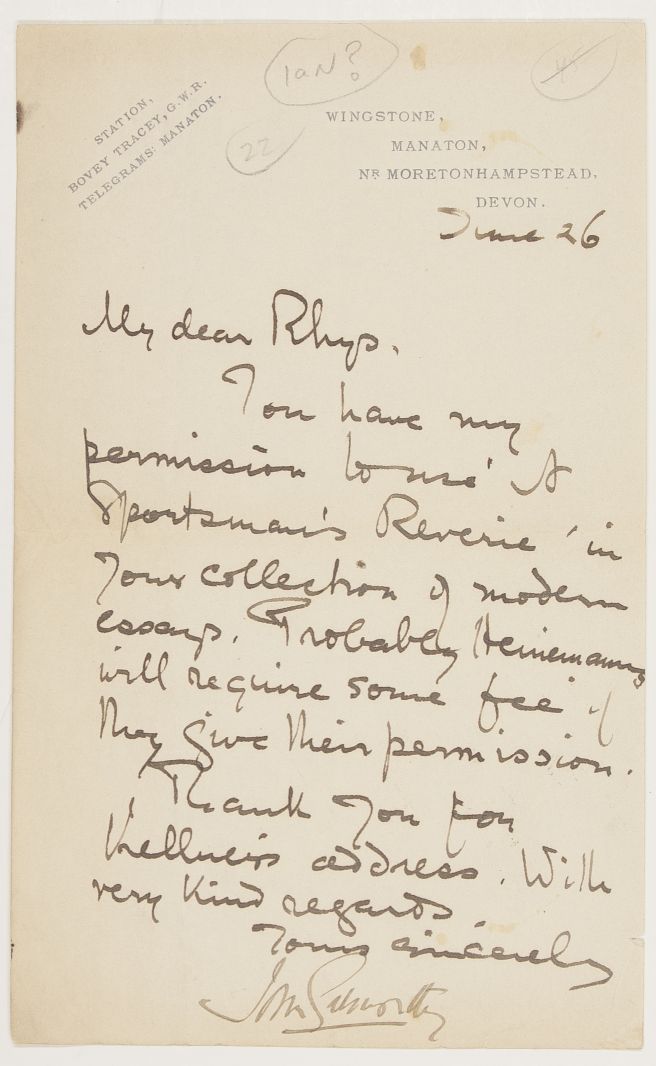 IaN?
45
STATION,
BOVEY TRACEY, G.W.R.
TELEGRAMS: MANATON.
22
WINGSTONE,
MANATON,
NR MORETONHAMPSTEAD,
DEVON.
June 26
My dear Rhys.
You have my
permission to use 'A
Sportsman's Reverie' in
your collection of modern
essays. Probably Heinemanns
will require some fee if
they give their permission.
Thank you for
Kellner's address. With
very kind regards
Yours sincerely
John Galsworthy